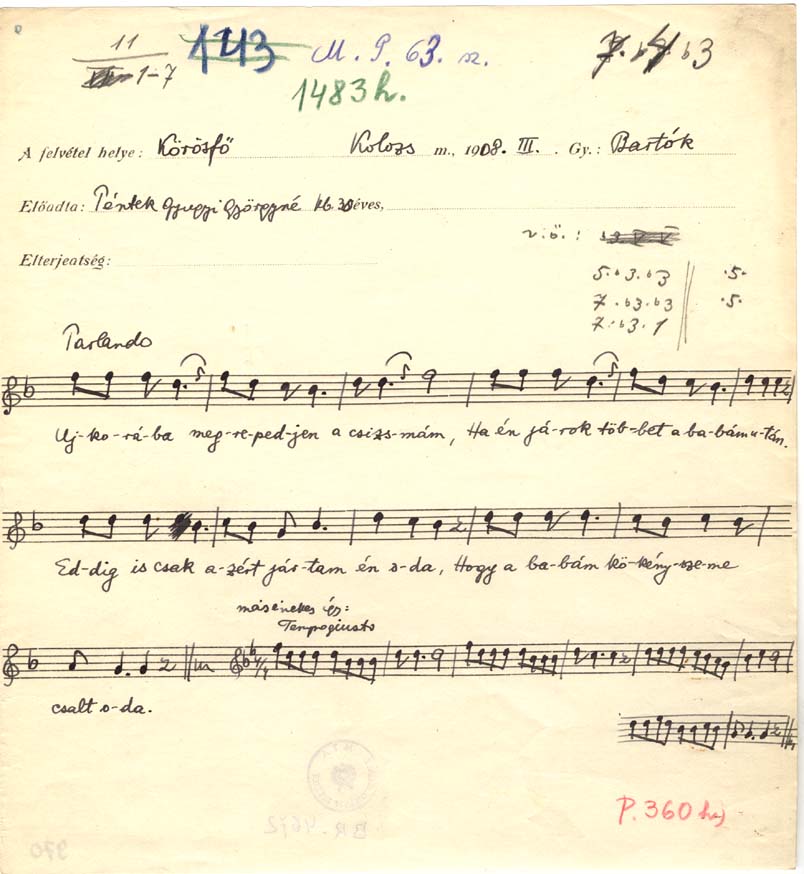 11
1-7
143
M. P. 63. sz.
1483 h.
A felvétel helye: Körösfő Kolozs m., 1908. III. Gy.: Bartók
Előadta: Péntek Gyugyi Györgyné kb. 30 éves,
v.ö.:
Elterjeatség:
5.b3.b3 .5.
7.b3.b3 .5.
7.b3.1
Parlando
Uj-ko-rá-ba meg-re-ped-jen a csizs-mám, Ha én já-rok töb-bet a ba-bám u-tán.
Ed-dig is csak a-zért jár-tam én o-da, Hogy a ba-bám kö-kény-sze-me
másénekes így:
Tempogiusto
csalt o-da.
P. 360
970